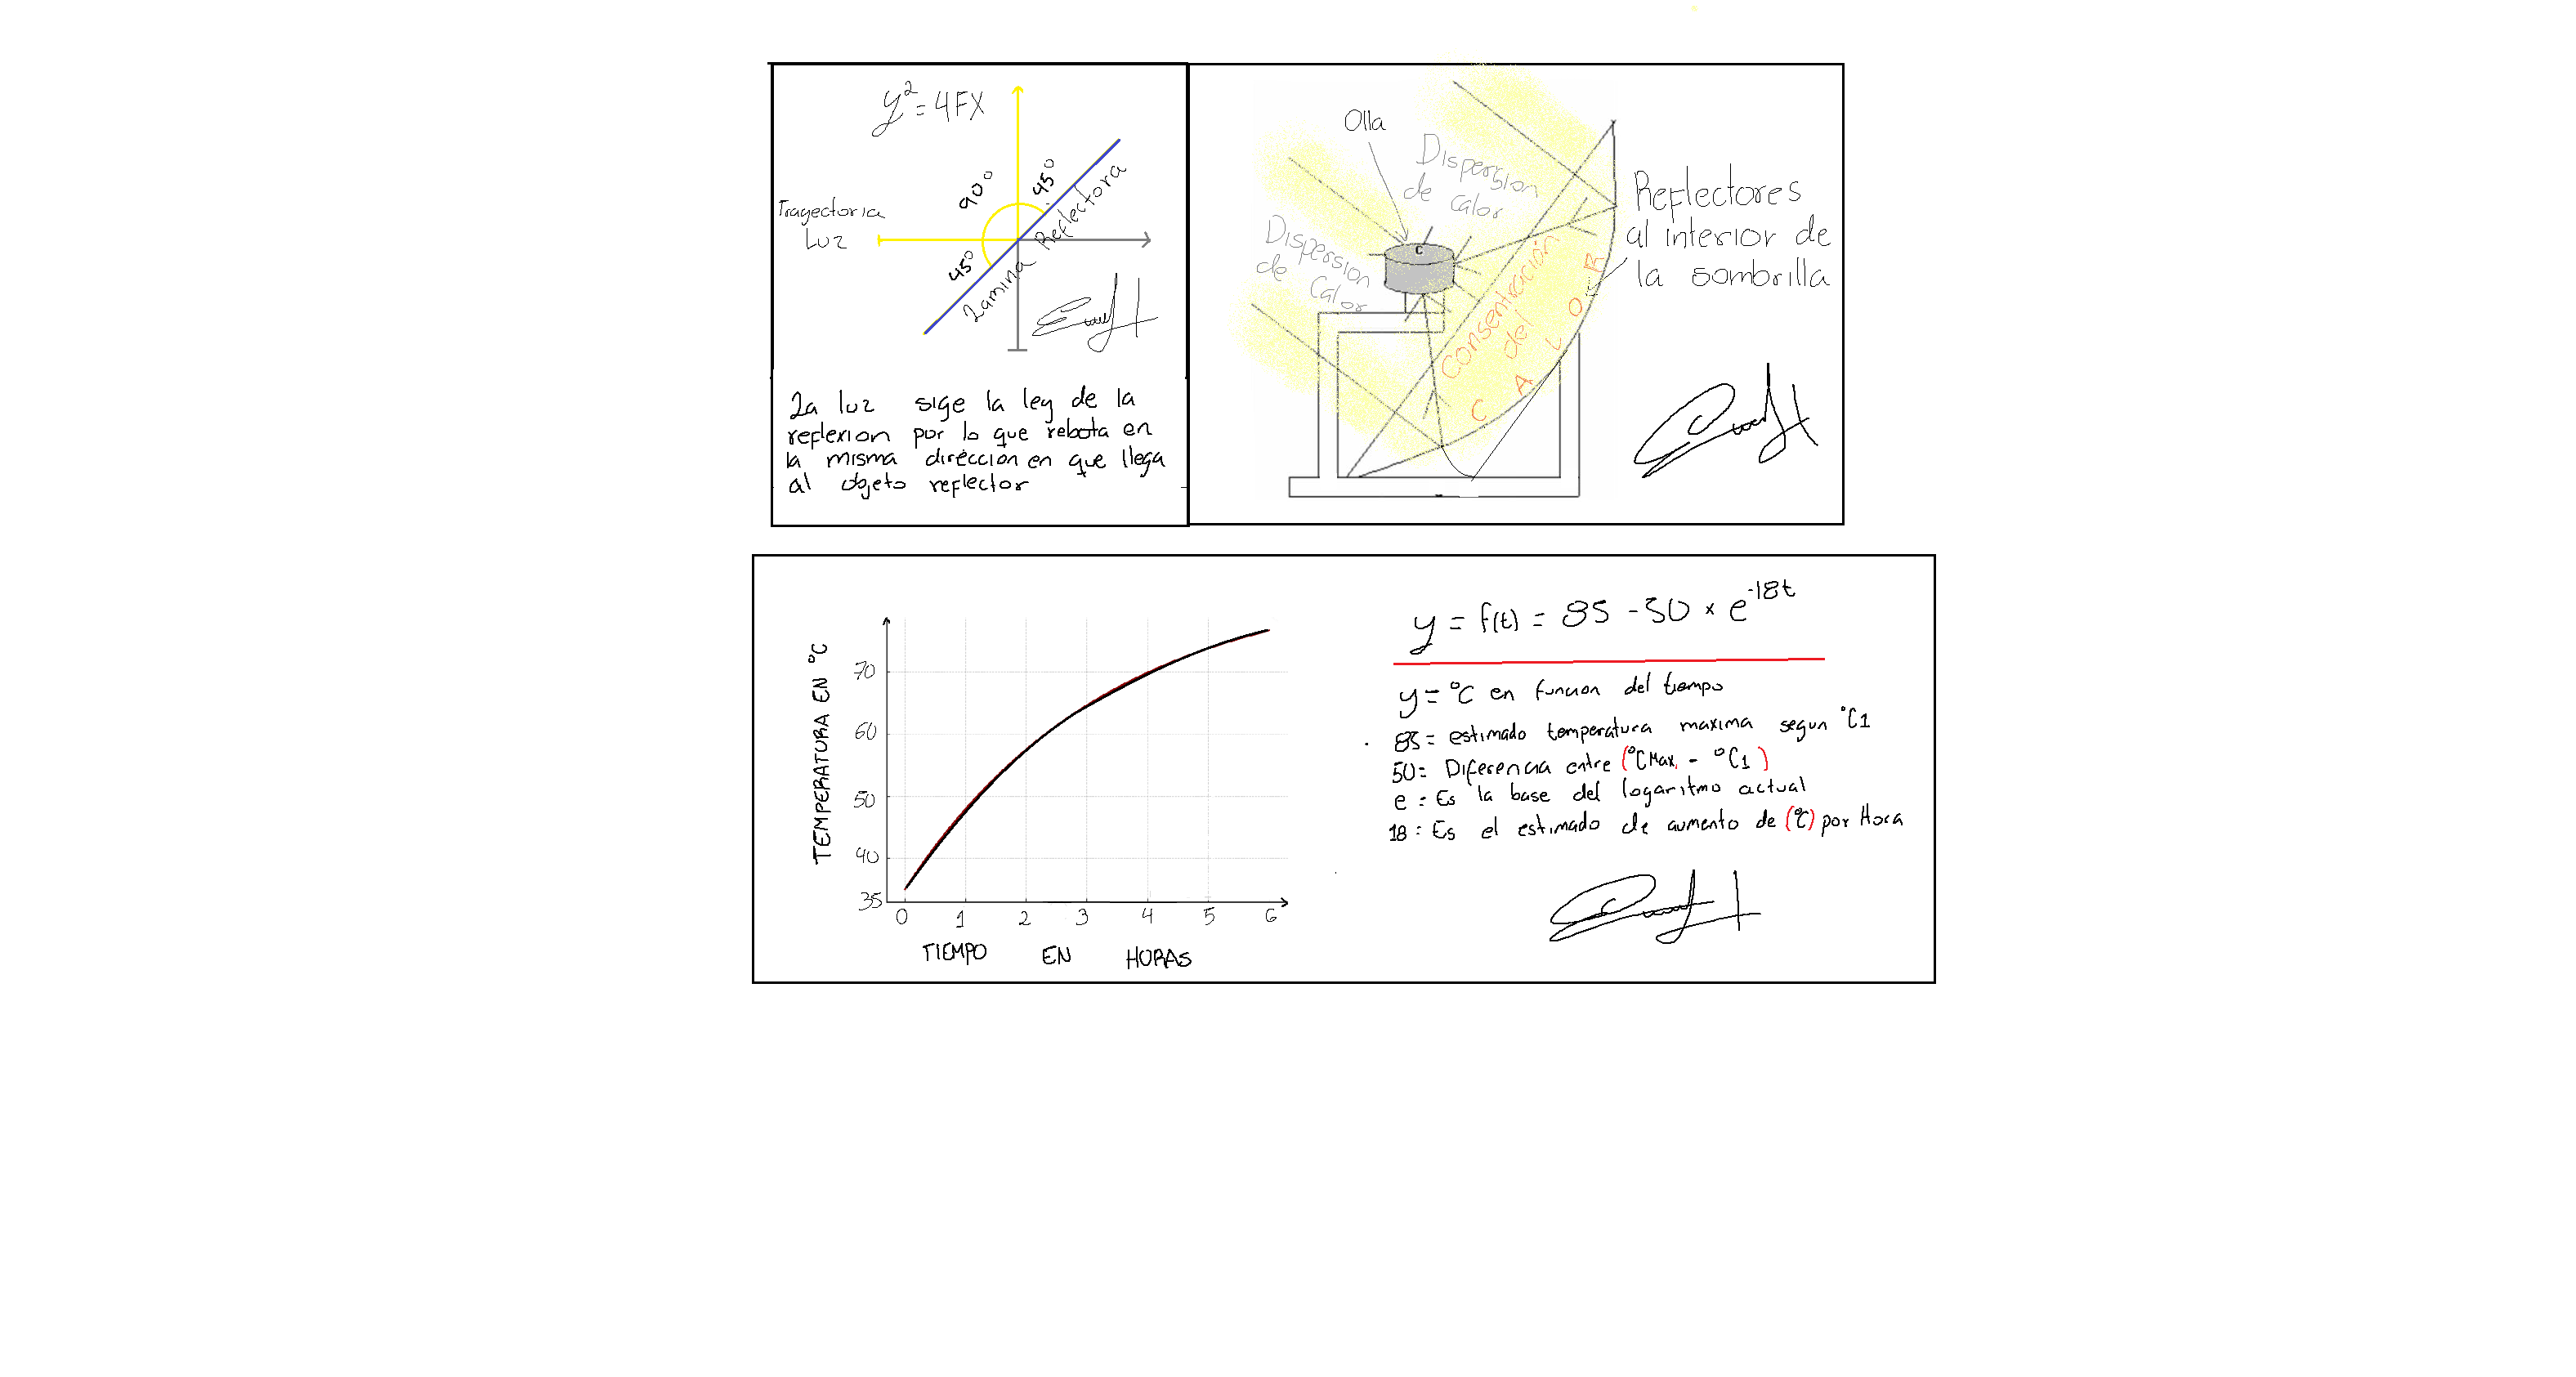 y² = 4FX
90°
45°
45°
Trayectoria
Luz
Lamina Reflectora
La luz sige la ley de la
reflexion por lo que rebota en
la misma dirección en que llega
al objeto reflector
Olla
Dispersion
de Calor
Dispersion
de Calor
C
Consentración
del
CALOR
Reflectores
al interior de
la sombrilla
TEMPERATURA EN °C
70
60
50
40
35
0 1 2 3 4 5 6
TIEMPO EN HORAS
y = f(t) = 85 - 50 × e^-18t
y = °C en funcion del tiempo
85 = estimado temperatura maxima segun °C1
50 = Diferencia entre (°CMax. - °C1)
e : Es la base del logaritmo actual
18 : Es el estimado de aumento de (°C) por Hora